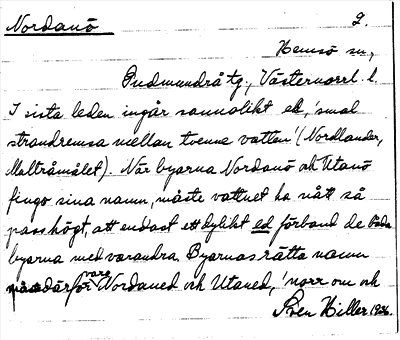 Nordanö 2.
Hemsö sn,
Gudmundrå tg., Västernorrl. l.
I sista leden ingår sannolikt ed, 'smal
strandremsa mellan tvenne vatten' (Nordlander,
Multråmålet). När byarna Nordanö och Utanö
fingo sina namn, måste vattnet ha nått så
pass högt, att endast ett dylikt ed förband de båda
byarna med varandra. Byarnas rätta namn
därför vore Nordaned och Utaned, 'norr om och
Sven Hiller 1936.